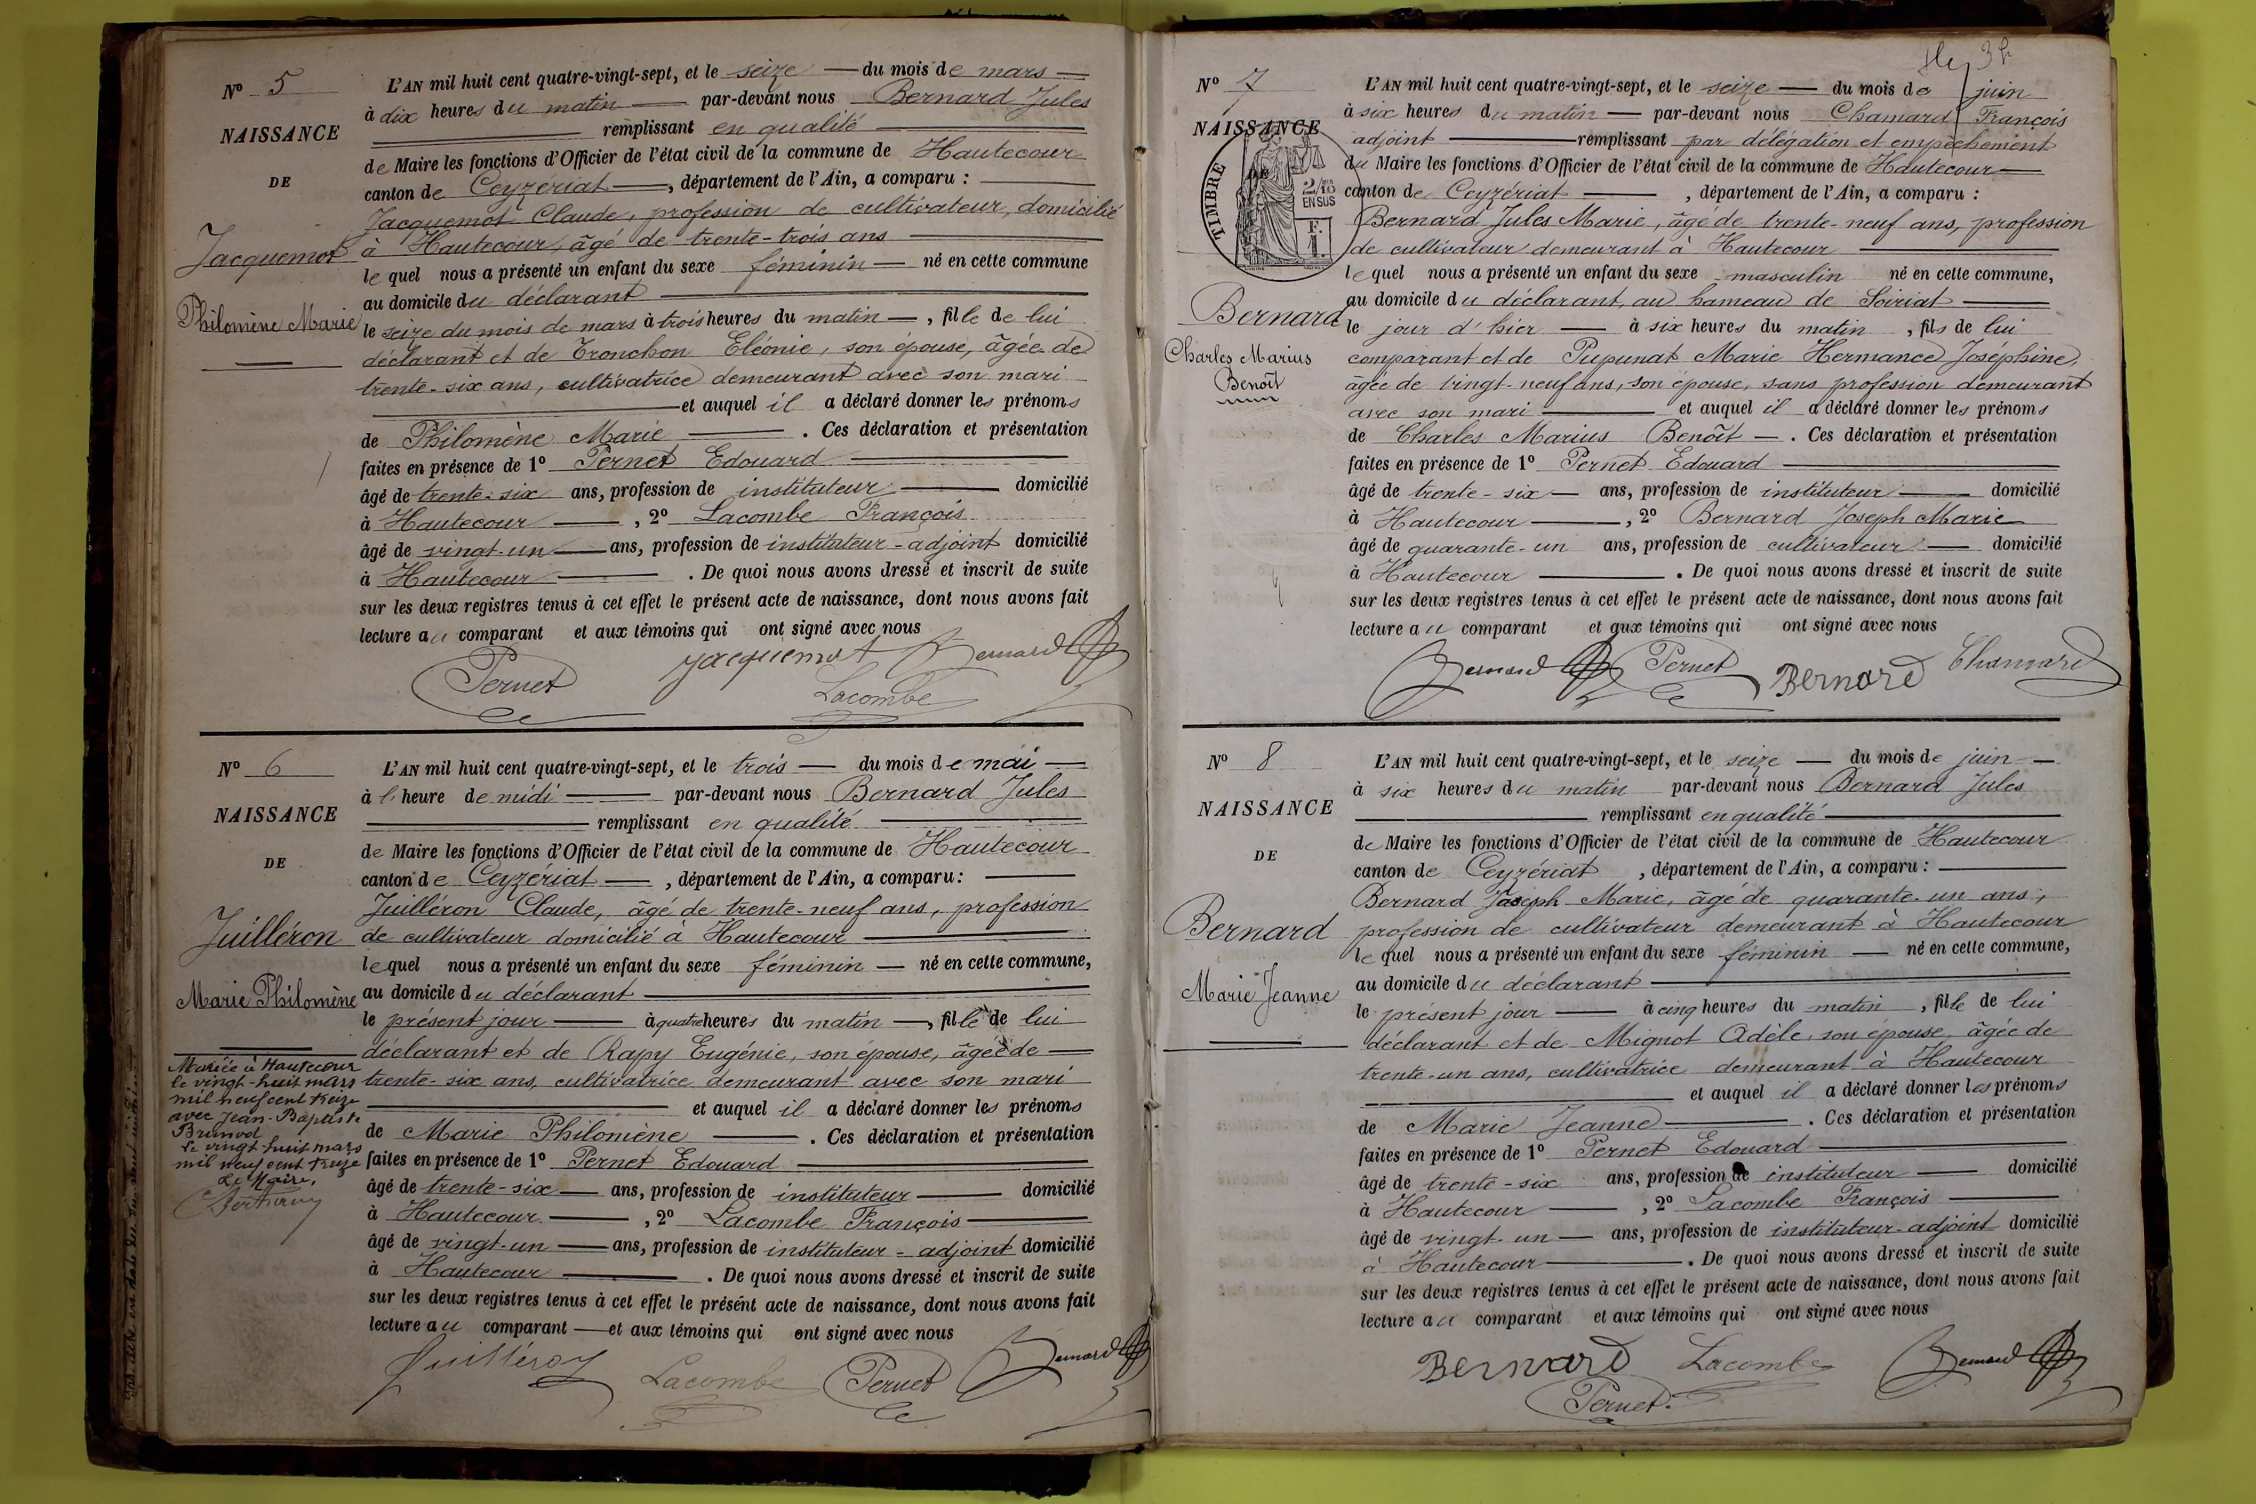 N° 5
NAISSANCE
DE
Jacquemot
Philomène Marie
L'AN mil huit cent quatre-vingt-sept, et le seize du mois de mars
à dix heures du matin par-devant nous Bernard Jules
remplissant en qualité
de Maire les fonctions d'Officier de l'état civil de la commune de Hautecour
canton de Ceyzériat, département de l'Ain, a comparu :
Jacquemot Claude, profession de cultivateur, domicilié
à Hautecour, âgé de trente-trois ans
lequel nous a présenté un enfant du sexe féminin né en cette commune
au domicile du déclarant
le seize du mois de mars à trois heures du matin, fille de lui
déclarant et de Tronchon Eléonie, son épouse, âgée de
trente-six ans, cultivatrice demeurant avec son mari
et auquel il a déclaré donner les prénoms
de Philomène Marie. Ces déclaration et présentation
faites en présence de 1° Pernet Edouard
âgé de trente-six ans, profession de instituteur domicilié
à Hautecour, 2° Lacombe François
âgé de vingt-un ans, profession de instituteur-adjoint domicilié
à Hautecour. De quoi nous avons dressé et inscrit de suite
sur les deux registres tenus à cet effet le présent acte de naissance, dont nous avons fait
lecture au comparant et aux témoins qui ont signé avec nous
Pernet Jacquemot Bernard
Lacombe
N° 6
NAISSANCE
DE
Juilléron
Marie Philomène
Mariée à Hautecour
le vingt-huit mars
mil neuf cent treize
avec Jean-Baptiste
Brunod
Le vingt-huit mars
mil neuf cent treize
Le Maire,
L'AN mil huit cent quatre-vingt-sept, et le trois du mois de mai
à l'heure de midi par-devant nous Bernard Jules
remplissant en qualité
de Maire les fonctions d'Officier de l'état civil de la commune de Hautecour
canton de Ceyzériat, département de l'Ain, a comparu :
Juilléron Claude, âgé de trente-neuf ans, profession
de cultivateur domicilié à Hautecour
lequel nous a présenté un enfant du sexe féminin né en cette commune,
au domicile du déclarant
le présent jour à quatre heures du matin, fille de lui
déclarant et de Rapy Eugénie, son épouse, âgée de
trente-six ans, cultivatrice demeurant avec son mari
et auquel il a déclaré donner les prénoms
de Marie Philomène. Ces déclaration et présentation
faites en présence de 1° Pernet Edouard
âgé de trente-six ans, profession de instituteur domicilié
à Hautecour, 2° Lacombe François
âgé de vingt-un ans, profession de instituteur-adjoint domicilié
à Hautecour. De quoi nous avons dressé et inscrit de suite
sur les deux registres tenus à cet effet le présent acte de naissance, dont nous avons fait
lecture au comparant et aux témoins qui ont signé avec nous
Juilléron Lacombe Pernet Bernard
N° 7
NAISSANCE
TIMBRE
2/10
EN SUS
F.
1.
Bernard
Charles Marius
Benoît
L'AN mil huit cent quatre-vingt-sept, et le seize du mois de juin
à six heures du matin par-devant nous Chamard François
adjoint remplissant par délégation et empêchement
du Maire les fonctions d'Officier de l'état civil de la commune de Hautecour
canton de Ceyzériat, département de l'Ain, a comparu :
Bernard Jules Marie, âgé de trente-neuf ans, profession
de cultivateur demeurant à Hautecour
lequel nous a présenté un enfant du sexe masculin né en cette commune,
au domicile du déclarant, au hameau de Soiriat
le jour d'hier à six heures du matin, fils de lui
comparant et de Pupunat Marie Hermance Joséphine,
âgée de vingt-neuf ans, son épouse, sans profession demeurant
avec son mari et auquel il a déclaré donner les prénoms
de Charles Marius Benoît. Ces déclaration et présentation
faites en présence de 1° Pernet Edouard
âgé de trente-six ans, profession de instituteur domicilié
à Hautecour, 2° Bernard Joseph Marie
âgé de quarante-un ans, profession de cultivateur domicilié
à Hautecour. De quoi nous avons dressé et inscrit de suite
sur les deux registres tenus à cet effet le présent acte de naissance, dont nous avons fait
lecture au comparant et aux témoins qui ont signé avec nous
Bernard Pernet Bernard Chamard
N° 8
NAISSANCE
DE
Bernard
Marie Jeanne
L'AN mil huit cent quatre-vingt-sept, et le seize du mois de juin
à six heures du matin par-devant nous Bernard Jules
remplissant en qualité
de Maire les fonctions d'Officier de l'état civil de la commune de Hautecour
canton de Ceyzériat, département de l'Ain, a comparu :
Bernard Joseph Marie, âgé de quarante-un ans,
profession de cultivateur demeurant à Hautecour
lequel nous a présenté un enfant du sexe féminin né en cette commune,
au domicile du déclarant
le présent jour à cinq heures du matin, fille de lui
déclarant et de Mignot Adèle, son épouse, âgée de
trente-un ans, cultivatrice demeurant à Hautecour
et auquel il a déclaré donner les prénoms
de Marie Jeanne. Ces déclaration et présentation
faites en présence de 1° Pernet Edouard
âgé de trente-six ans, profession de instituteur domicilié
à Hautecour, 2° Lacombe François
âgé de vingt-un ans, profession de instituteur-adjoint domicilié
à Hautecour. De quoi nous avons dressé et inscrit de suite
sur les deux registres tenus à cet effet le présent acte de naissance, dont nous avons fait
lecture au comparant et aux témoins qui ont signé avec nous
Bernard Lacombe Bernard
Pernet